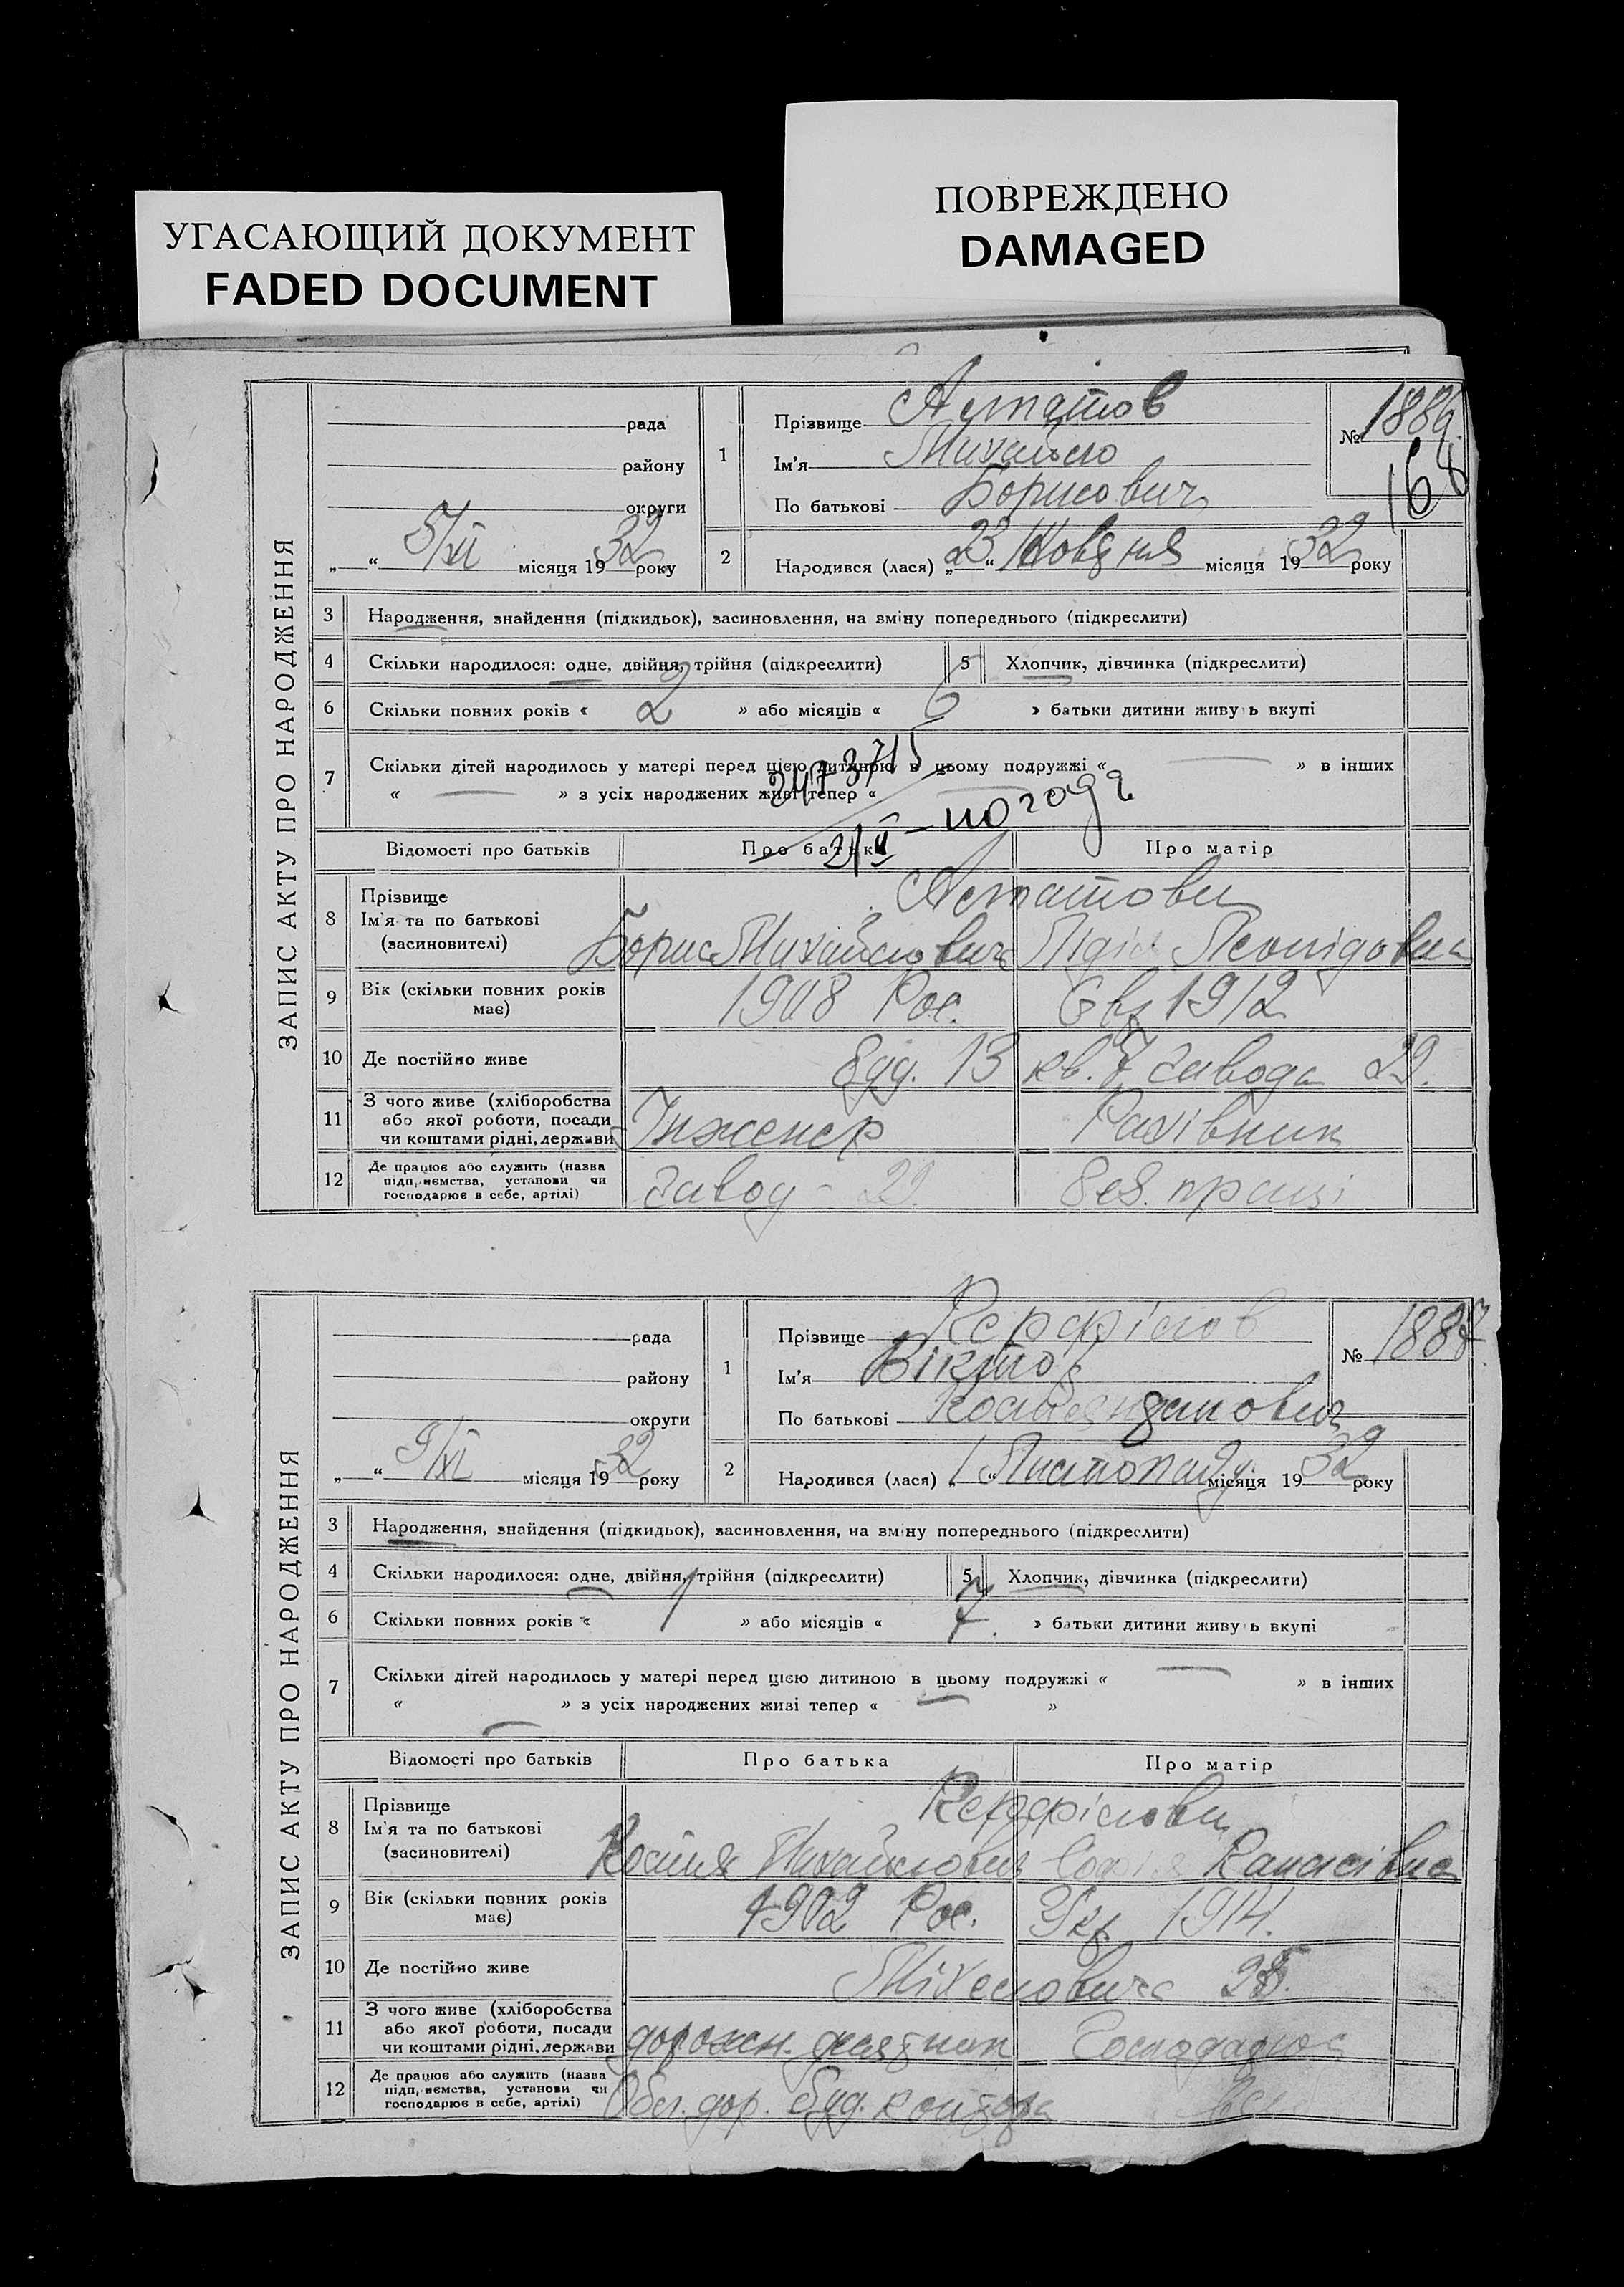 УГАСАЮЩИЙ ДОКУМЕНТ
FADED DOCUMENT
ПОВРЕЖДЕНО
DAMAGED
ЗАПИС АКТУ ПРО НАРОДЖЕННЯ
рада
району
округи
„ “ 5/XI місяця 1932 року
1 Прізвище
Ім'я Михайло
По батькові Борисович
№ 1886
168
2 Народився (лася) „23“ Жовтня місяця 1932 року
3 Народження, знайдення (підкидьок), засиновлення, на зміну попереднього (підкреслити)
4 Скільки народилося: одне, двійня, трійня (підкреслити) 5 Хлопчик, дівчинка (підкреслити)
6 Скільки повних років « 2 » або місяців « 6 » батьки дитини живуть вкупі
7 Скільки дітей народилось у матері перед цією дитиною в цьому подружжі « — » в інших
« — » з усіх народжених живі тепер « —
Відомості про батьків Про батька Про матір
8 Прізвище
Ім'я та по батькові
(засиновителі)
Борис Михайлович Лідія Леонідовна
9 Вік (скільки повних років має) 1908 Рос. Євр 1912
10 Де постійно живе буд. 13 кв. 7 завода 29.
11 З чого живе (хліборобства або якої роботи, посади чи коштами рідні, держави Інженер Рахівник
12 Де працює або служить (назва підприємства, установи чи господарює в себе, артілі) завод - 29. без праці
ЗАПИС АКТУ ПРО НАРОДЖЕННЯ
рада
району
округи
„ “ 9/XI місяця 1932 року
1 Прізвище Керфілов
Ім'я Віктор
По батькові
№ 1887
2 Народився (лася) „1“ Листопаду місяця 1932 року
3 Народження, знайдення (підкидьок), засиновлення, на зміну попереднього (підкреслити)
4 Скільки народилося: одне, двійня, трійня (підкреслити) 5 Хлопчик, дівчинка (підкреслити)
6 Скільки повних років « 1 » або місяців « 7. » батьки дитини живуть вкупі
7 Скільки дітей народилось у матері перед цією дитиною в цьому подружжі « — » в інших
« — » з усіх народжених живі тепер « — »
Відомості про батьків Про батька Про матір
8 Прізвище Керфілови
Ім'я та по батькові
(засиновителі)
Михайлович Софія
9 Вік (скільки повних років має) 1902 Рос. Укр 1914.
10 Де постійно живе 25.
11 З чого живе (хліборобства або якої роботи, посади чи коштами рідні, держави дорожн. десятник
12 Де працює або служить (назва підприємства, установи чи господарює в себе, артілі) Обл. дор. буд. контора